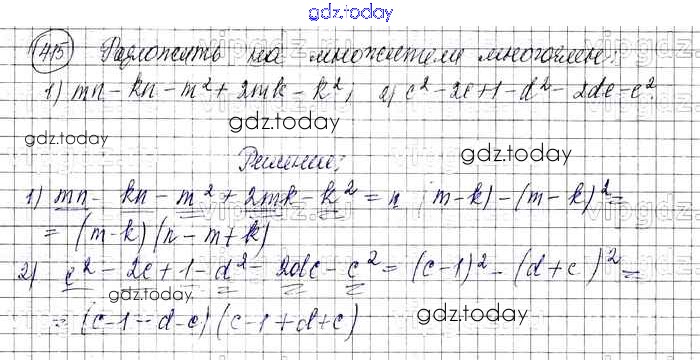 gdz.today
415 Разложить на множители многочлен:
1) mn - kn - m² + 2mk - k²; 2) c² - 2c + 1 - d² - 2de - e².
gdz.today gdz.today gdz.today
Решение:
1) mn - kn - m² + 2mk - k² = n (m-k) - (m-k)² =
= (m-k)(n-m+k)
2) c² - 2c + 1 - d² - 2de - e² = (c-1)² - (d+e)² =
gdz.today
= (c-1-d-e)(c-1+d+e)
gdz.today